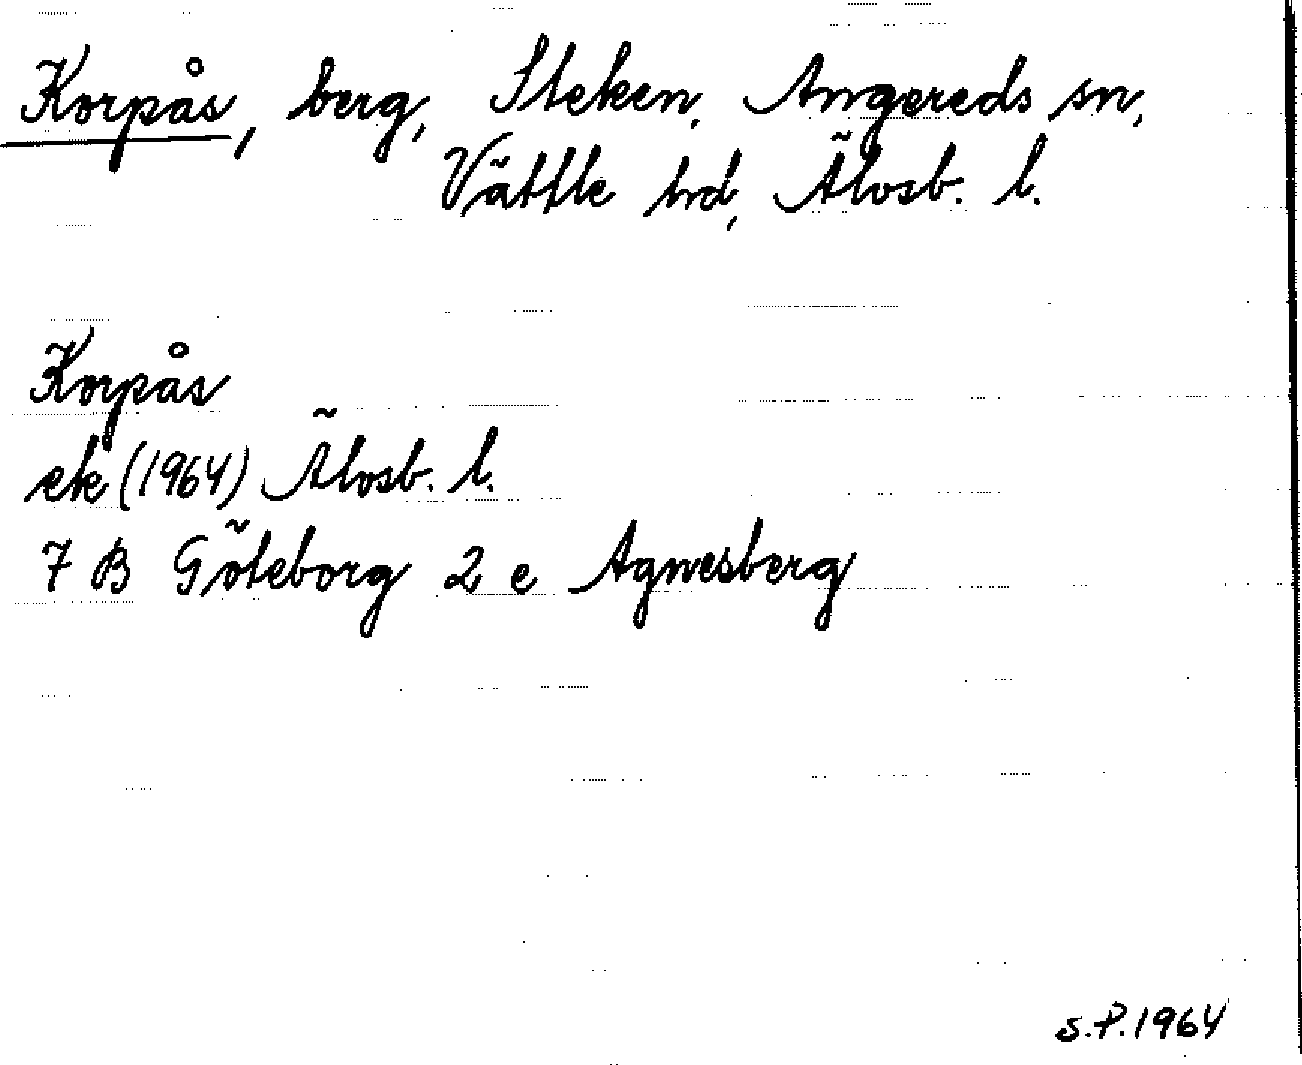 Korpås, berg, Steken, Angereds sn,
Vättle hd, Älvsb. l.
Korpås
ek (1964) Älvsb. l.
7 B Göteborg 2 e Agnesberg
S.P. 1964